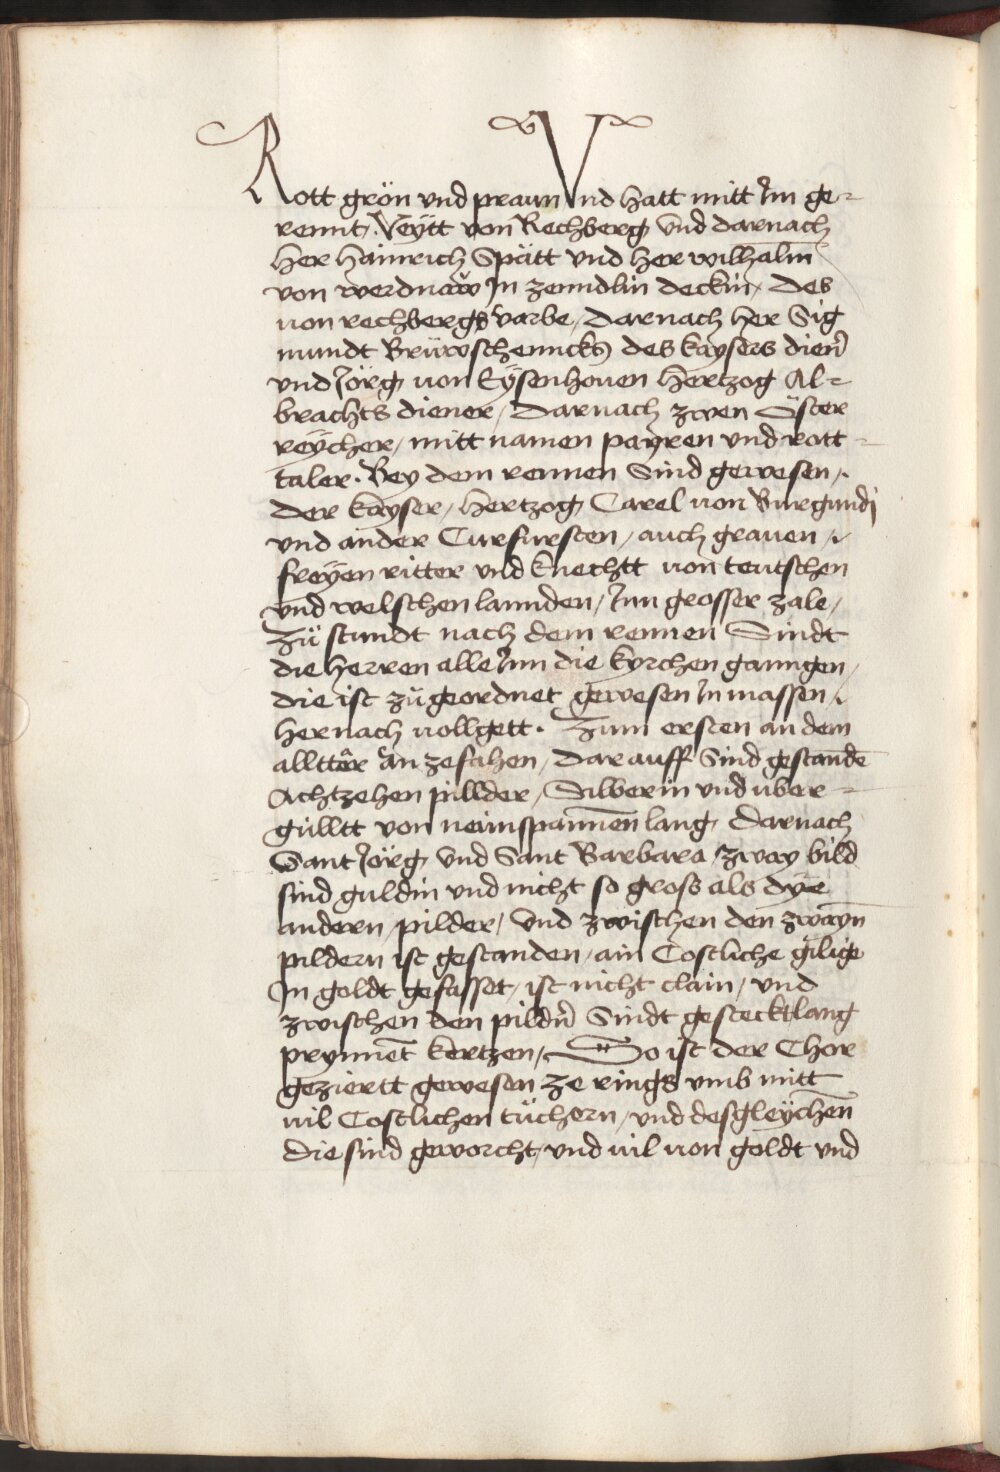 Rott grön vnd praun Vnd hatt mitt Im ge=
rennt. Veÿtt von Rechberg vnd darnach
Her Hainrich Spätt vnd her wilhalm
von werdnaw̆ Jn zenndlin deckin, des
von rechbergs varbe, darnach her Sig
mundt Brüwschennckh des kaysers dien̄
vnd Jörg von Eÿsenhouen Hertzog Al=
brachts diener, Darnach zwen Öster
reÿcher, mitt namen payren vnd rott=
taler. Bey dem rennen Sind gewesen,
der kayser, Hertzog Carel von Burgundj
vnd ander Curfursten, auch grauen,
freÿen ritter vnd knechtt von teutschen
vnd welschen lannden, Inn grosser zale,
Zŭ stundt nach dem rennen Sindt
die herren alle Inn die kyrchen ganngen,
die ist zŭ geordnet gewesen In massen,
hernach vollgett. Zum ersten an dem
allttâr an zefahen, dar auff Sind gestandē
Achtzehen pillder, Silberin vnd vber=
gülltt von neünspannen lang Darnach
Sant Jörg vnd Sant Barbara, zway bild
sind guldin vnd nicht so gross als dÿe
andern pilder, Vnd zwischen den zwayn
pildern ist gestanden, ain Costliche gilige
Jn goldt gefasset, ist nicht clain, vnd
zwischen den pildn̄ Sindt gesteckt lang
prynnēt kertzen, So ist der Chor
gezierrtt gewesen ze rings vmb mitt
vil Costlichen tüchern, vnd desgleÿchen
die sind geworcht, vnd vil von goldt vnd